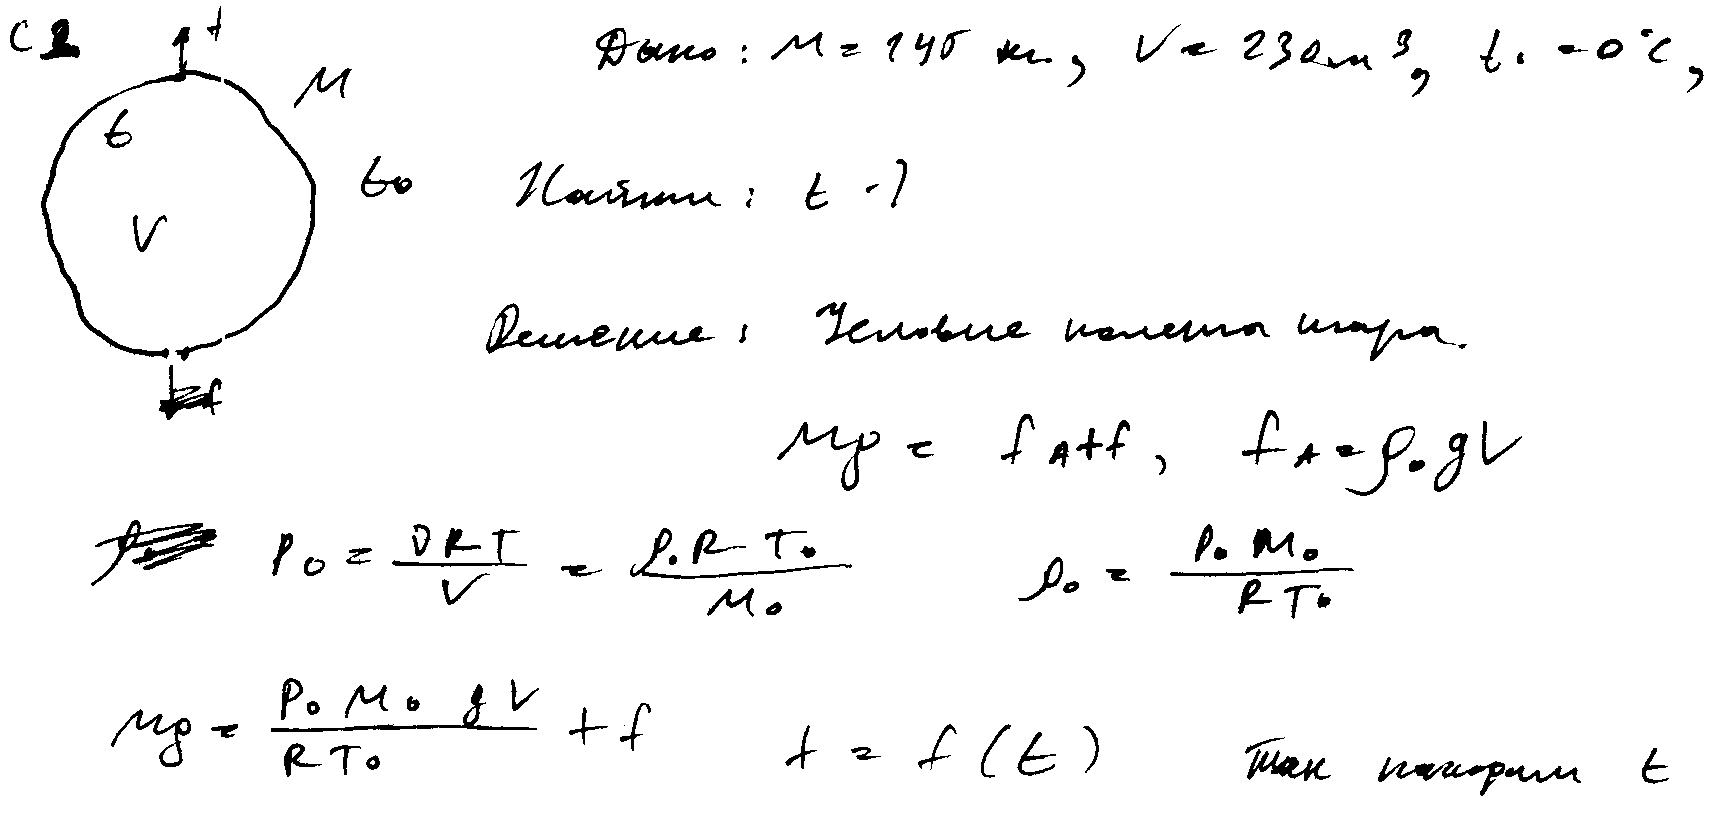 С2
f
M
t
V
t₀
f
Дано: M = 145 кг, V = 230 м³, t₀ = 0°C,
Найти: t - ?
Решение: Условие полета шара.
Mg = f_A + f, f_A = ρ₀gV
P₀ = νRT/V = ρ₀RT₀/M₀ ρ₀ = P₀M₀/RT₀
Mg = P₀M₀gV/RT₀ + f f = f(t) Так находим t